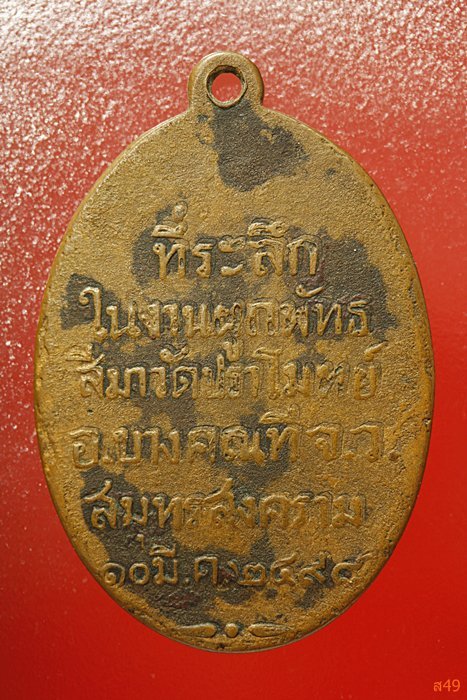 ที่ระลึก
ในงานผูกพัทธ
สีมาวัดปราโมทย์
อ.บางคณที จ.ว.
สมุทรสงคราม
๑๐ มี.ค. ๒๔๙๔
ส49